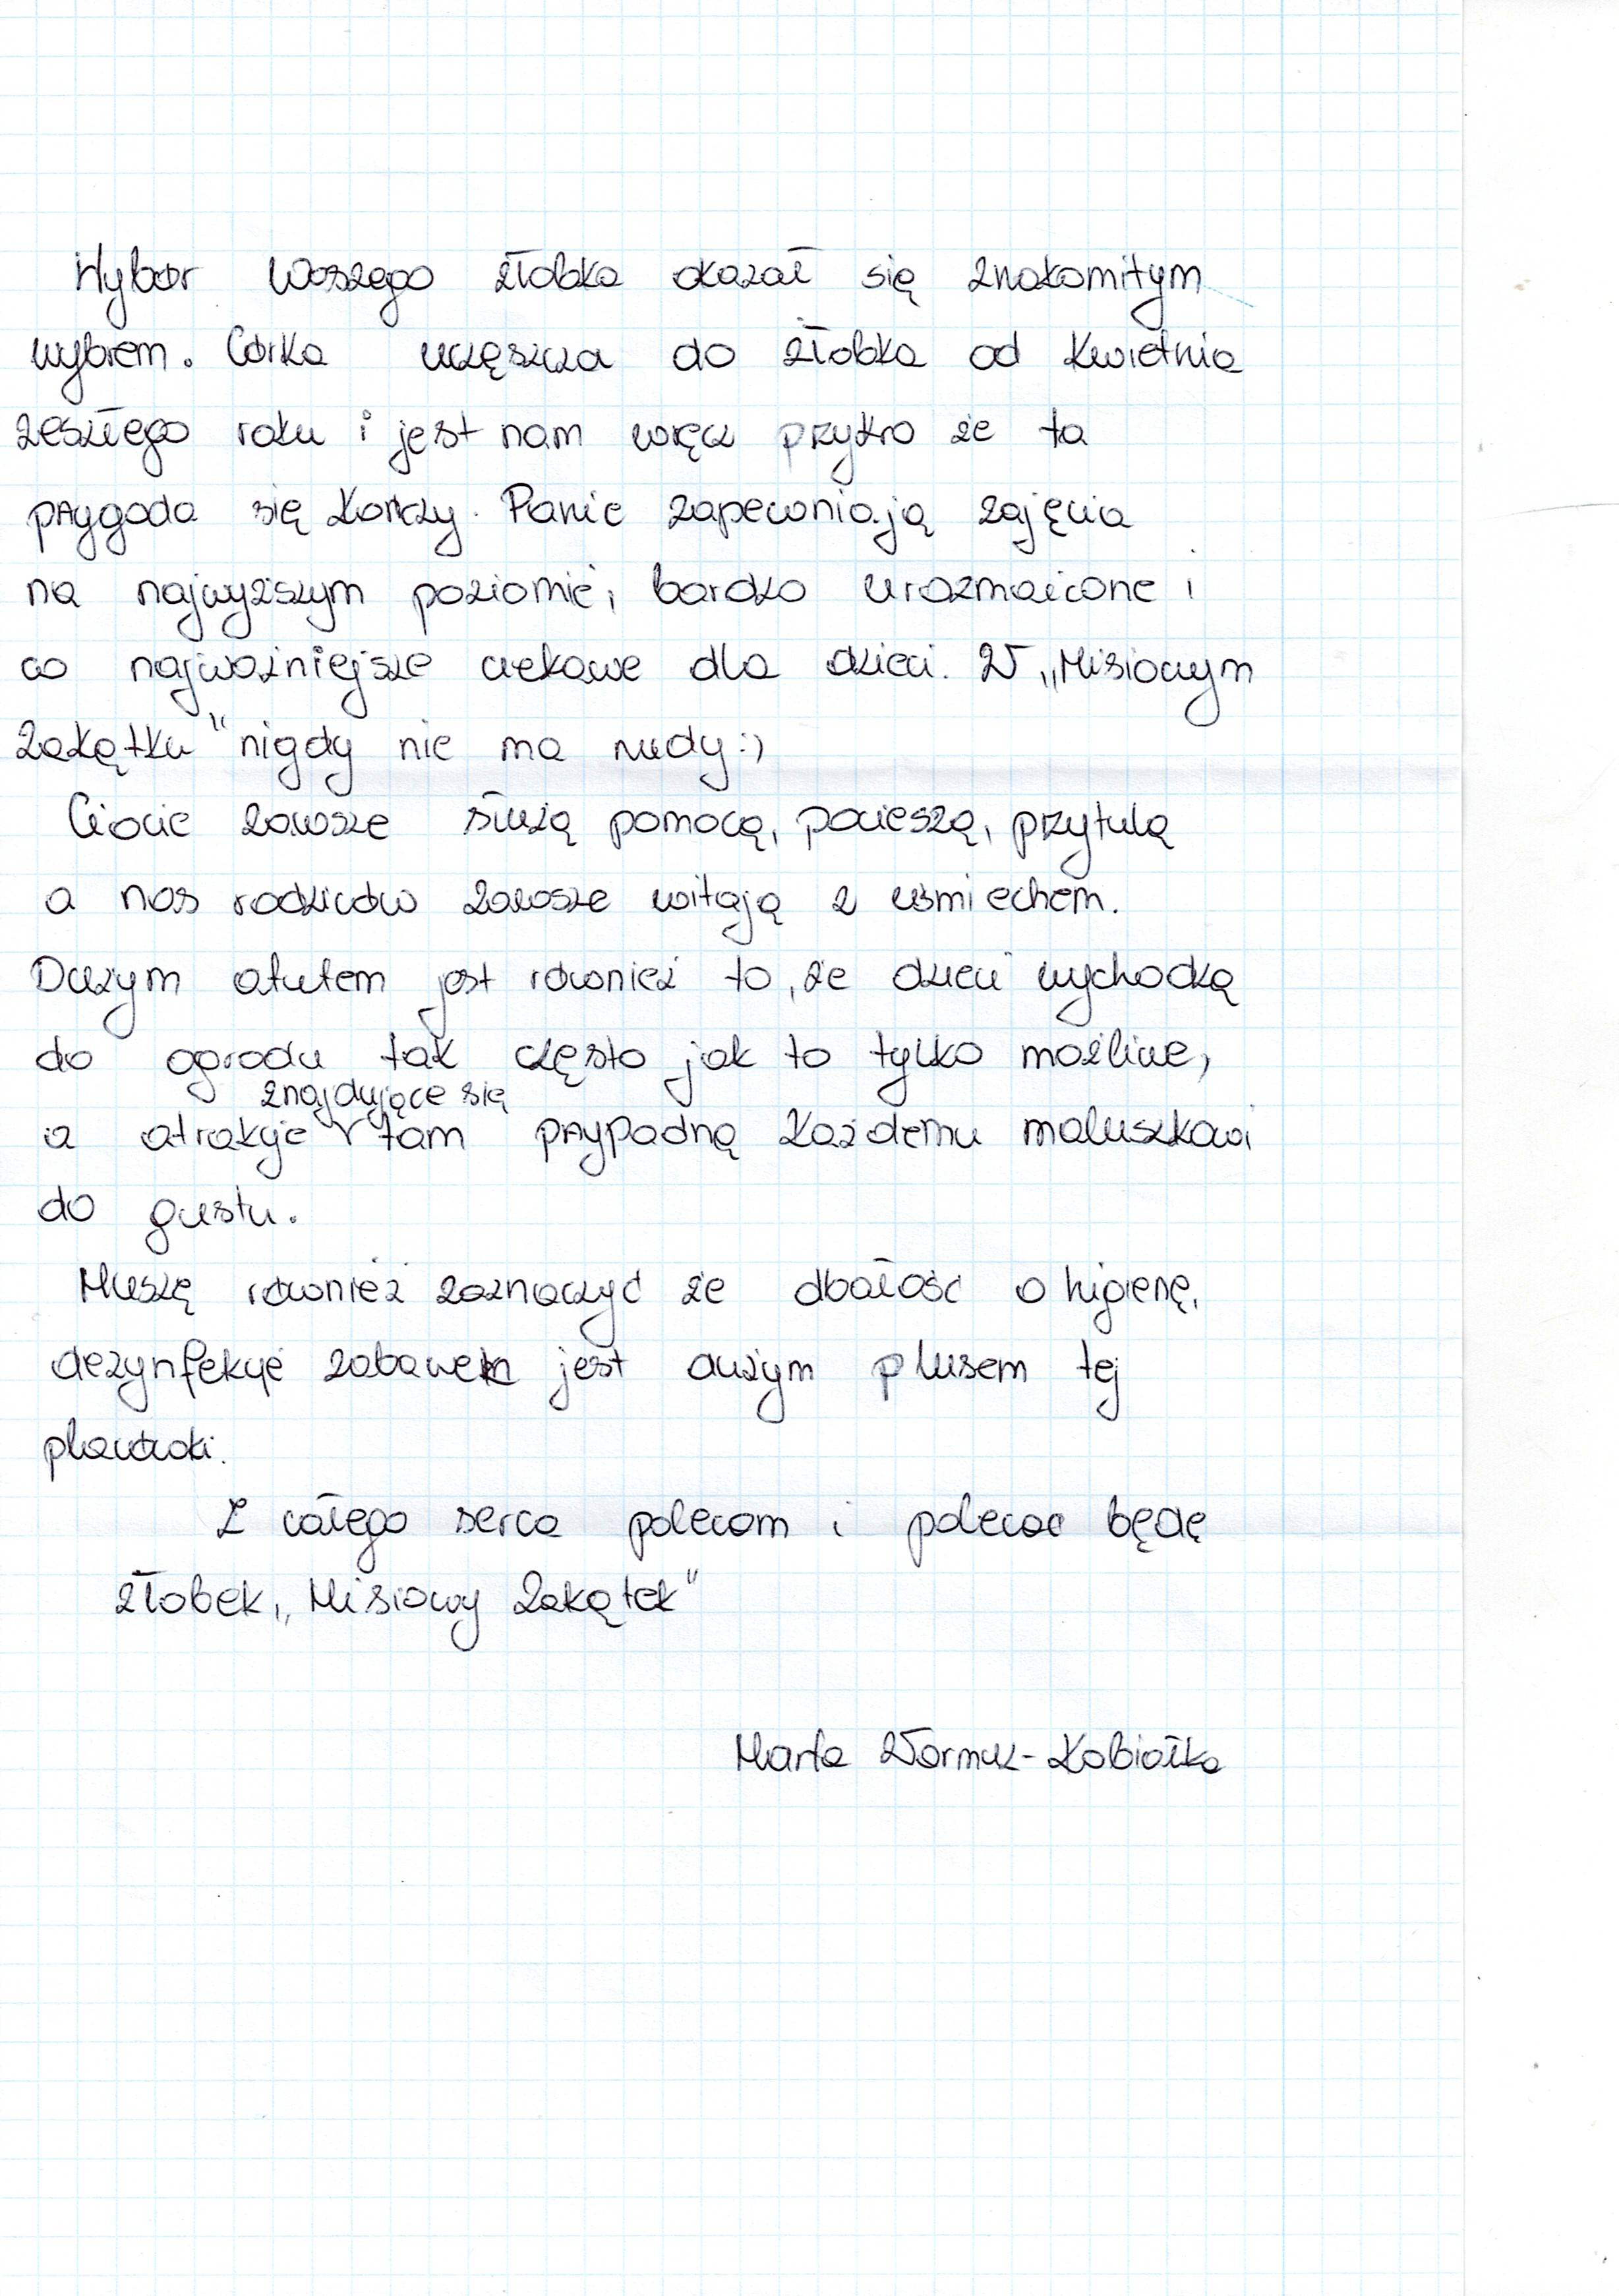 Wybór Waszego żłobka okazał się znakomitym
wybrem. Córka uczęszcza do żłobka od kwietnia
zeszłego roku i jest nam wręcz przykro że ta
przygoda się kończy. Panie zapewniają zajęcia
na najwyższym poziomie, bardzo urozmaicone i
co najważniejsze ciekawe dla dzieci. W „Misiowym
Zakątku" nigdy nie ma nudy:)
Ciocie zawsze służą pomocą, pocieszą, przytulą
a nas rodziców zawsze witają z uśmiechem.
Dużym atutem jest również to, że dzieci wychodzą
do ogrodu tak często jak to tylko możliwe,
znajdujące się
a atrakcje tam przypadną każdemu maluszkowi
do gustu.
Muszę również zaznaczyć że dbałość o higienę,
dezynfekcje zabawek jest dużym plusem tej
placówki.
Z całego serca polecam i polecać będę
żłobek „Misiowy Zakątek"
Marta Warmuz-Kobiałka